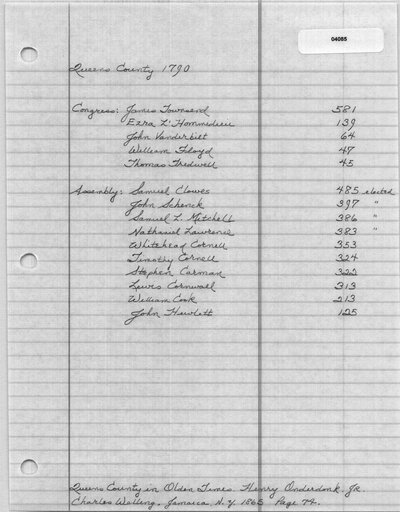 04085
Queens County 1790
Congress: James Townsend 581
Ezra L'Hommedieu 139
John Vanderbilt 64
William Floyd 47
Thomas Tredwell 45
Assembly: Samuel Clowes 485 elected
John Schenck 397 "
Samuel L. Mitchell 386 "
Nathaniel Lawrence 383 "
Whitehead Cornell 353
Timothy Cornell 324
Stephen Carman 322
Lewis Cornwall 313
William Cook 213
John Hewlett 125
Queens County in Olden Times. Henry Onderdonk, Jr.
Charles Welling. Jamaica, N.Y. 1865 Page 74.